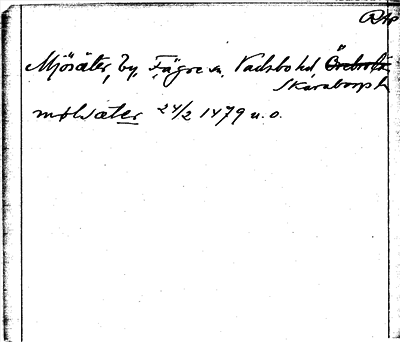 RAp
Mjösäter, by, Fägre sn, Vadsbo hd, Örebro l.
Skaraborgs l.
mølsæter 24/2 1479 u. o.